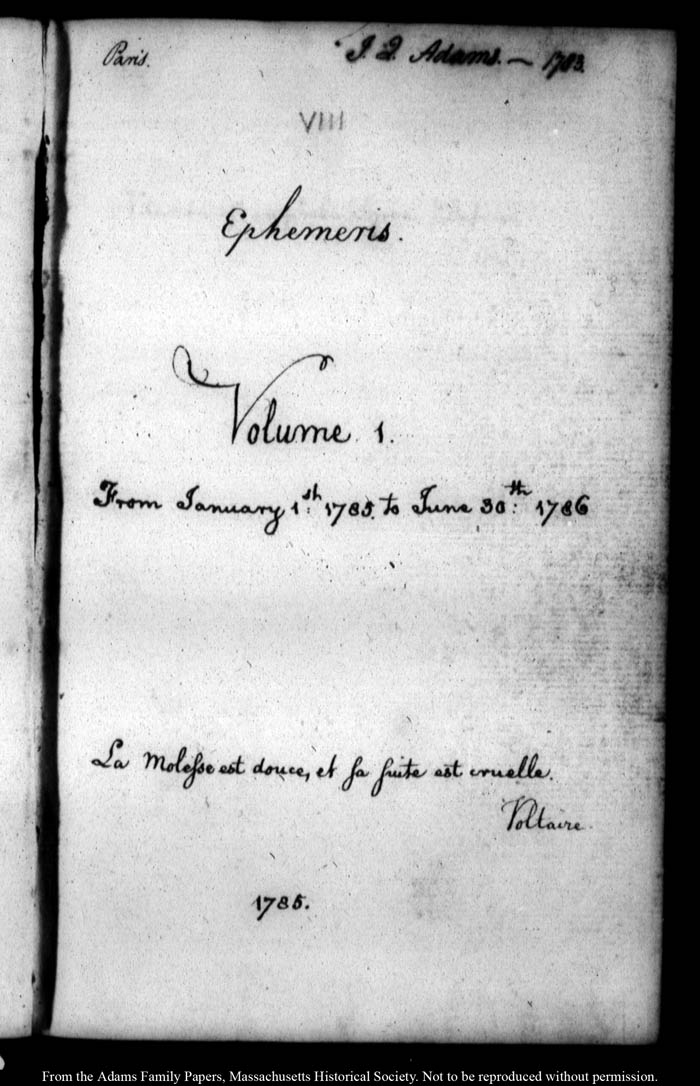 Paris.
J. Q. Adams. — 1783.
VIII
Ephemeris.
Volume 1.
From January 1.sth 1785. to June 30.th: 1786
La Molesse est douce, et sa suite est cruelle.
Voltaire.
1785.
From the Adams Family Papers, Massachusetts Historical Society. Not to be reproduced without permission.